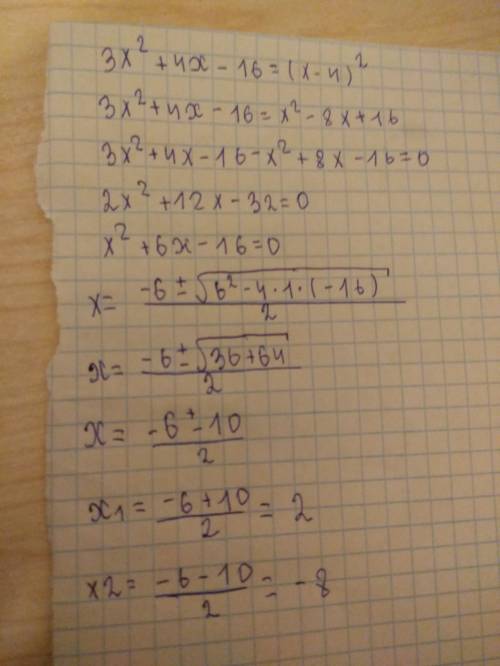 3x² + 4x - 16 = (x - 4)²
3x² + 4x - 16 = x² - 8x + 16
3x² + 4x - 16 - x² + 8x - 16 = 0
2x² + 12x - 32 = 0
x² + 6x - 16 = 0
x = (-6 ± √(6² - 4 · 1 · (-16))) / 2
x = (-6 ± √(36 + 64)) / 2
x = (-6 ± 10) / 2
x1 = (-6 + 10) / 2 = 2
x2 = (-6 - 10) / 2 = -8